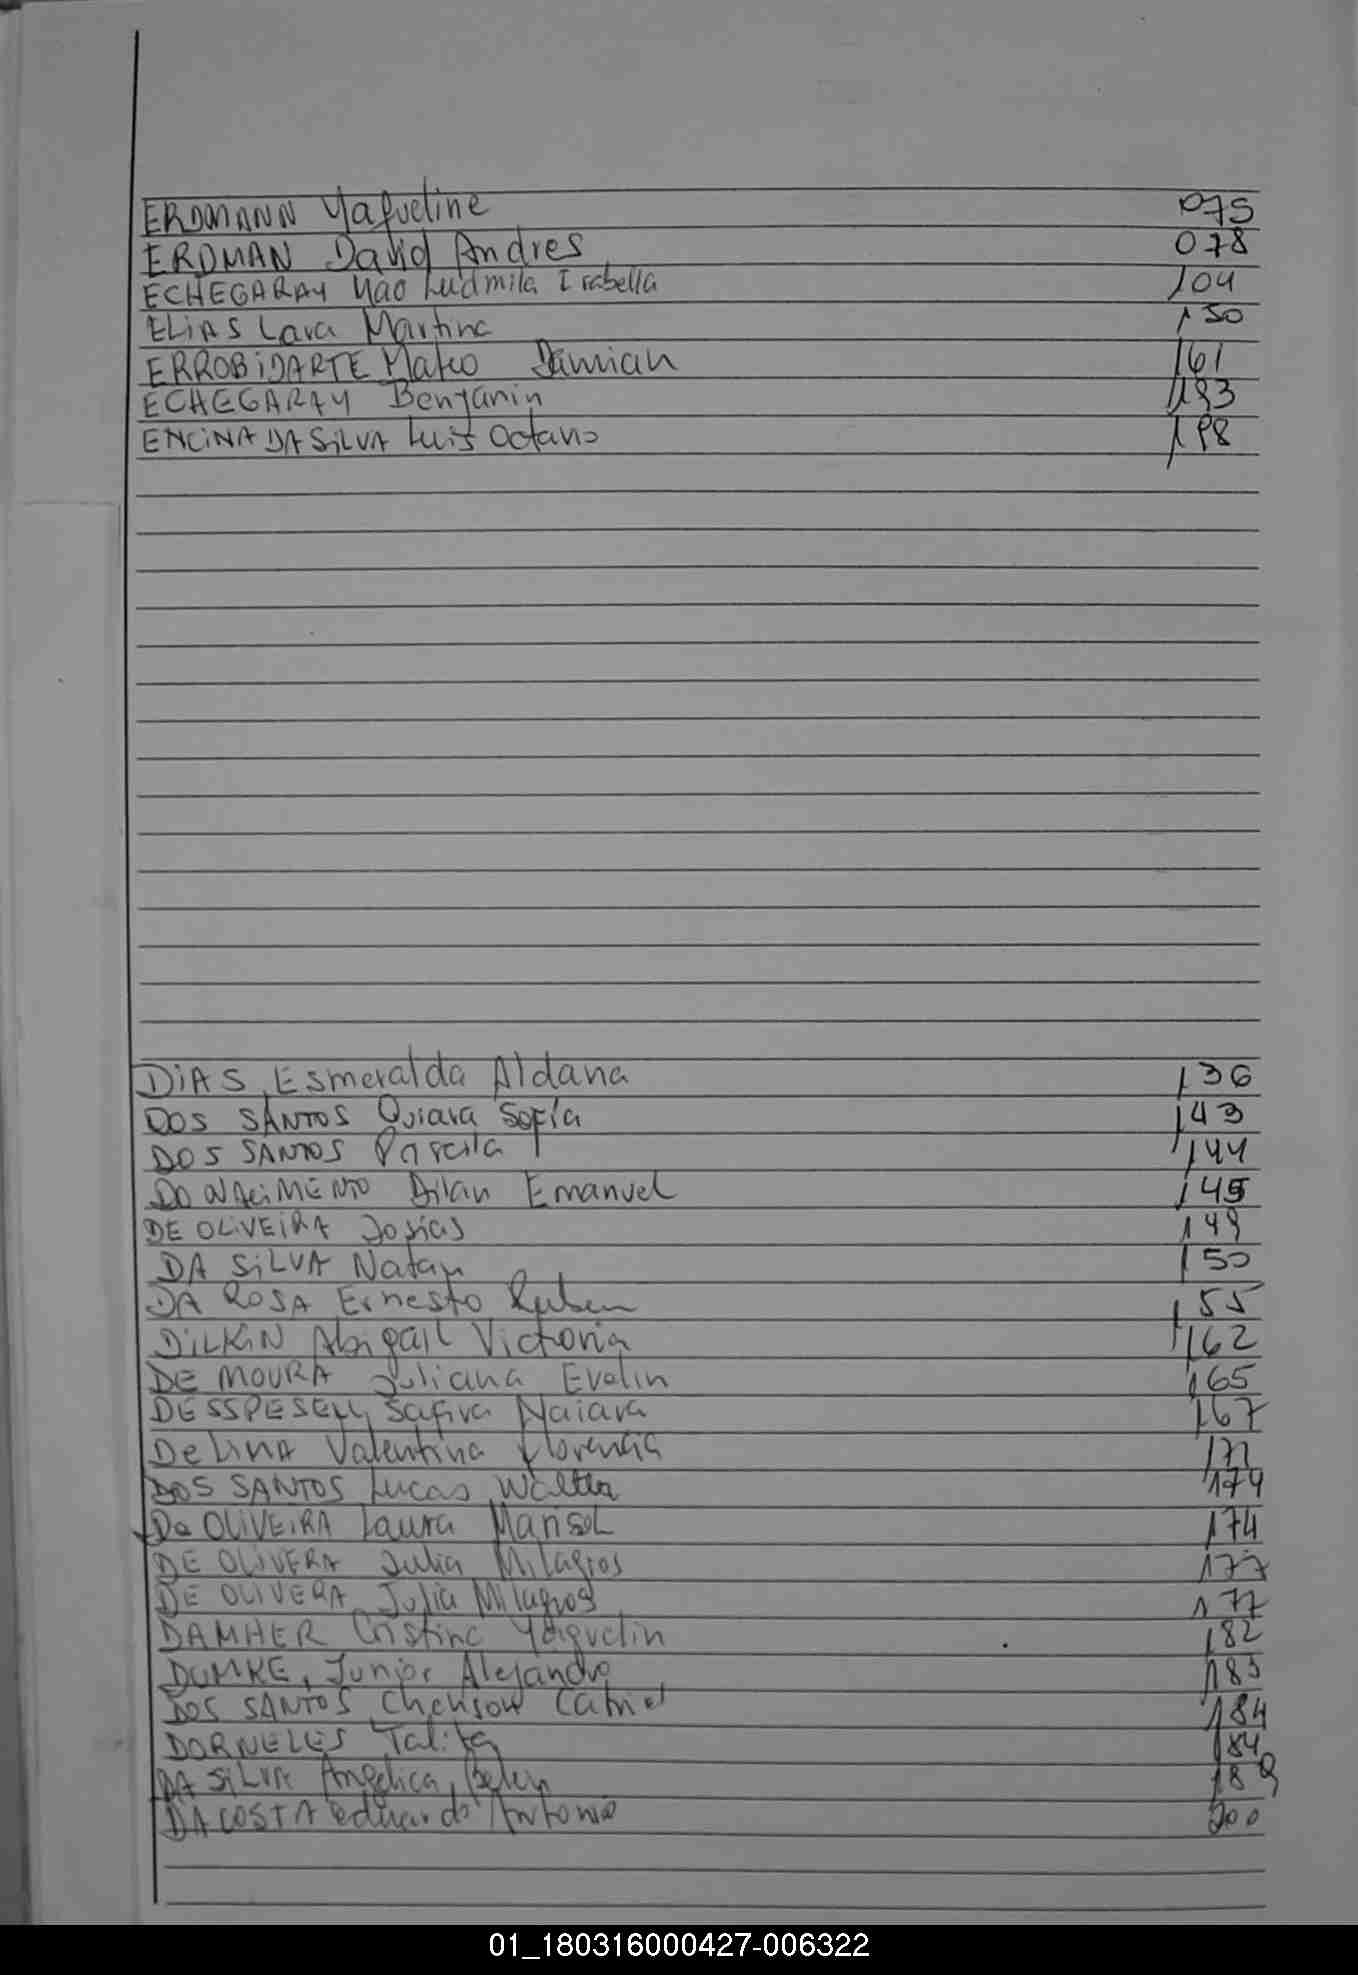 ERDMANN Yaqueline 075
ERDMAN David Andres 078
ECHEGARAY Yao Ludmila Isabella 104
ELIAS Lara Martina 150
ERROBIDARTE Mateo Damian 161
ECHEGARAY Benjamin 193
ENCINA DA SILVA Luis Octavio 198
DIAS, Esmeralda Aldana 136
DOS SANTOS Quiara Sofía 143
DOS SANTOS Priscila 144
DO NACIMENTO Dilan Emanuel 145
DE OLIVEIRA Josías 149
DA SILVA Natan 150
DA ROSA Ernesto Ruben 155
DILKIN Abigail Victoria 162
DE MOURA Juliana Evelin 165
Safira Naiara 167
De LIMA Valentina Florencia 171
DOS SANTOS Lucas Walter 174
De OLIVEIRA Laura Marisol 174
DE OLIVERA Julia Milagros 177
DE OLIVERA Julia Milagros 177
DAMHER Cristina Yaquelin 182
DUMKE, Junior Alejandro 183
DOS SANTOS 184
DORNELES Talita 184
DA SILVA Angelica Belen 189
DA COSTA Eduardo Antonio 200
01_180316000427-006322